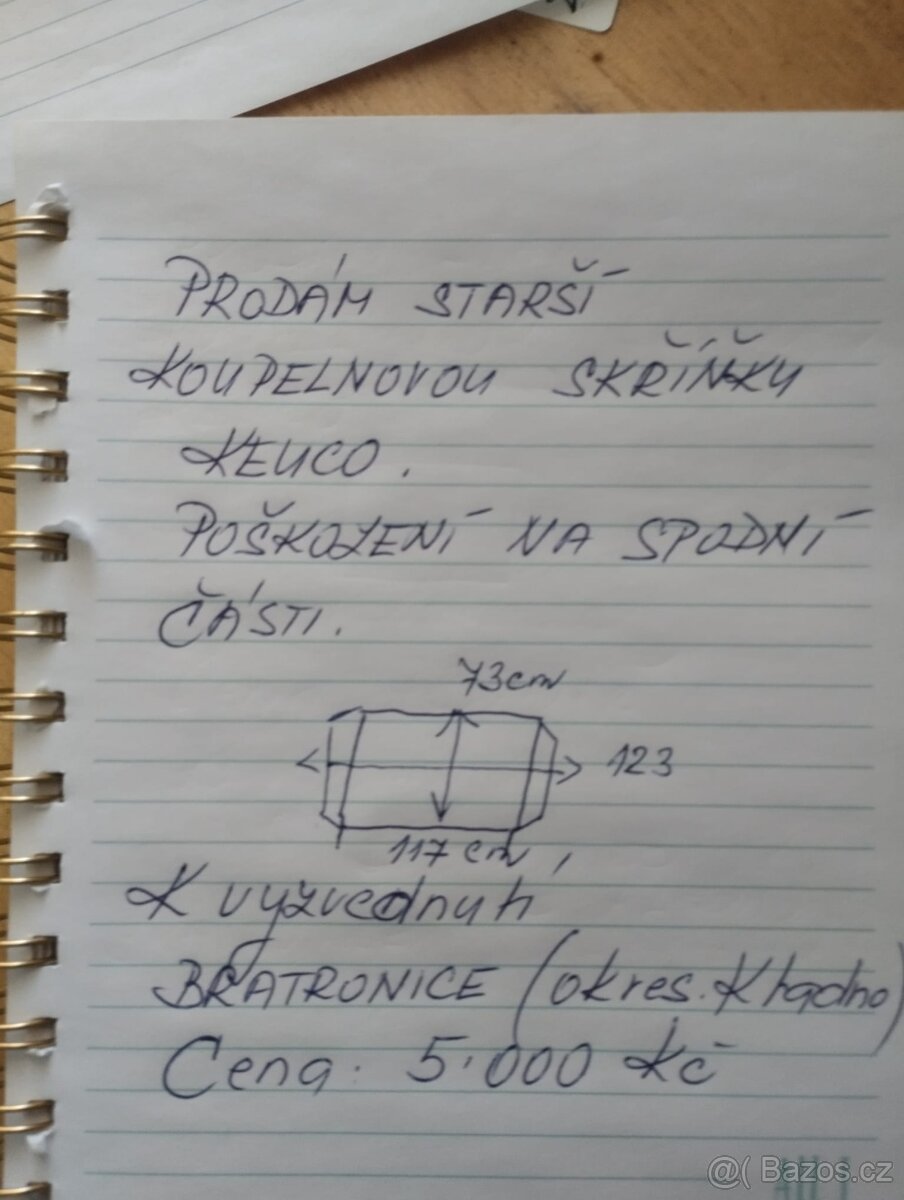 PRODÁM STARŠÍ
KOUPELNOVOU SKŘÍŇKU
KEUCO.
POŠKOZENÍ NA SPODNÍ
ČÁSTI.
73cm
123
117 cm
K vyzvednutí
BRATRONICE (okres. Kladno)
Cena. 5.000 Kč
@( Bazos.cz